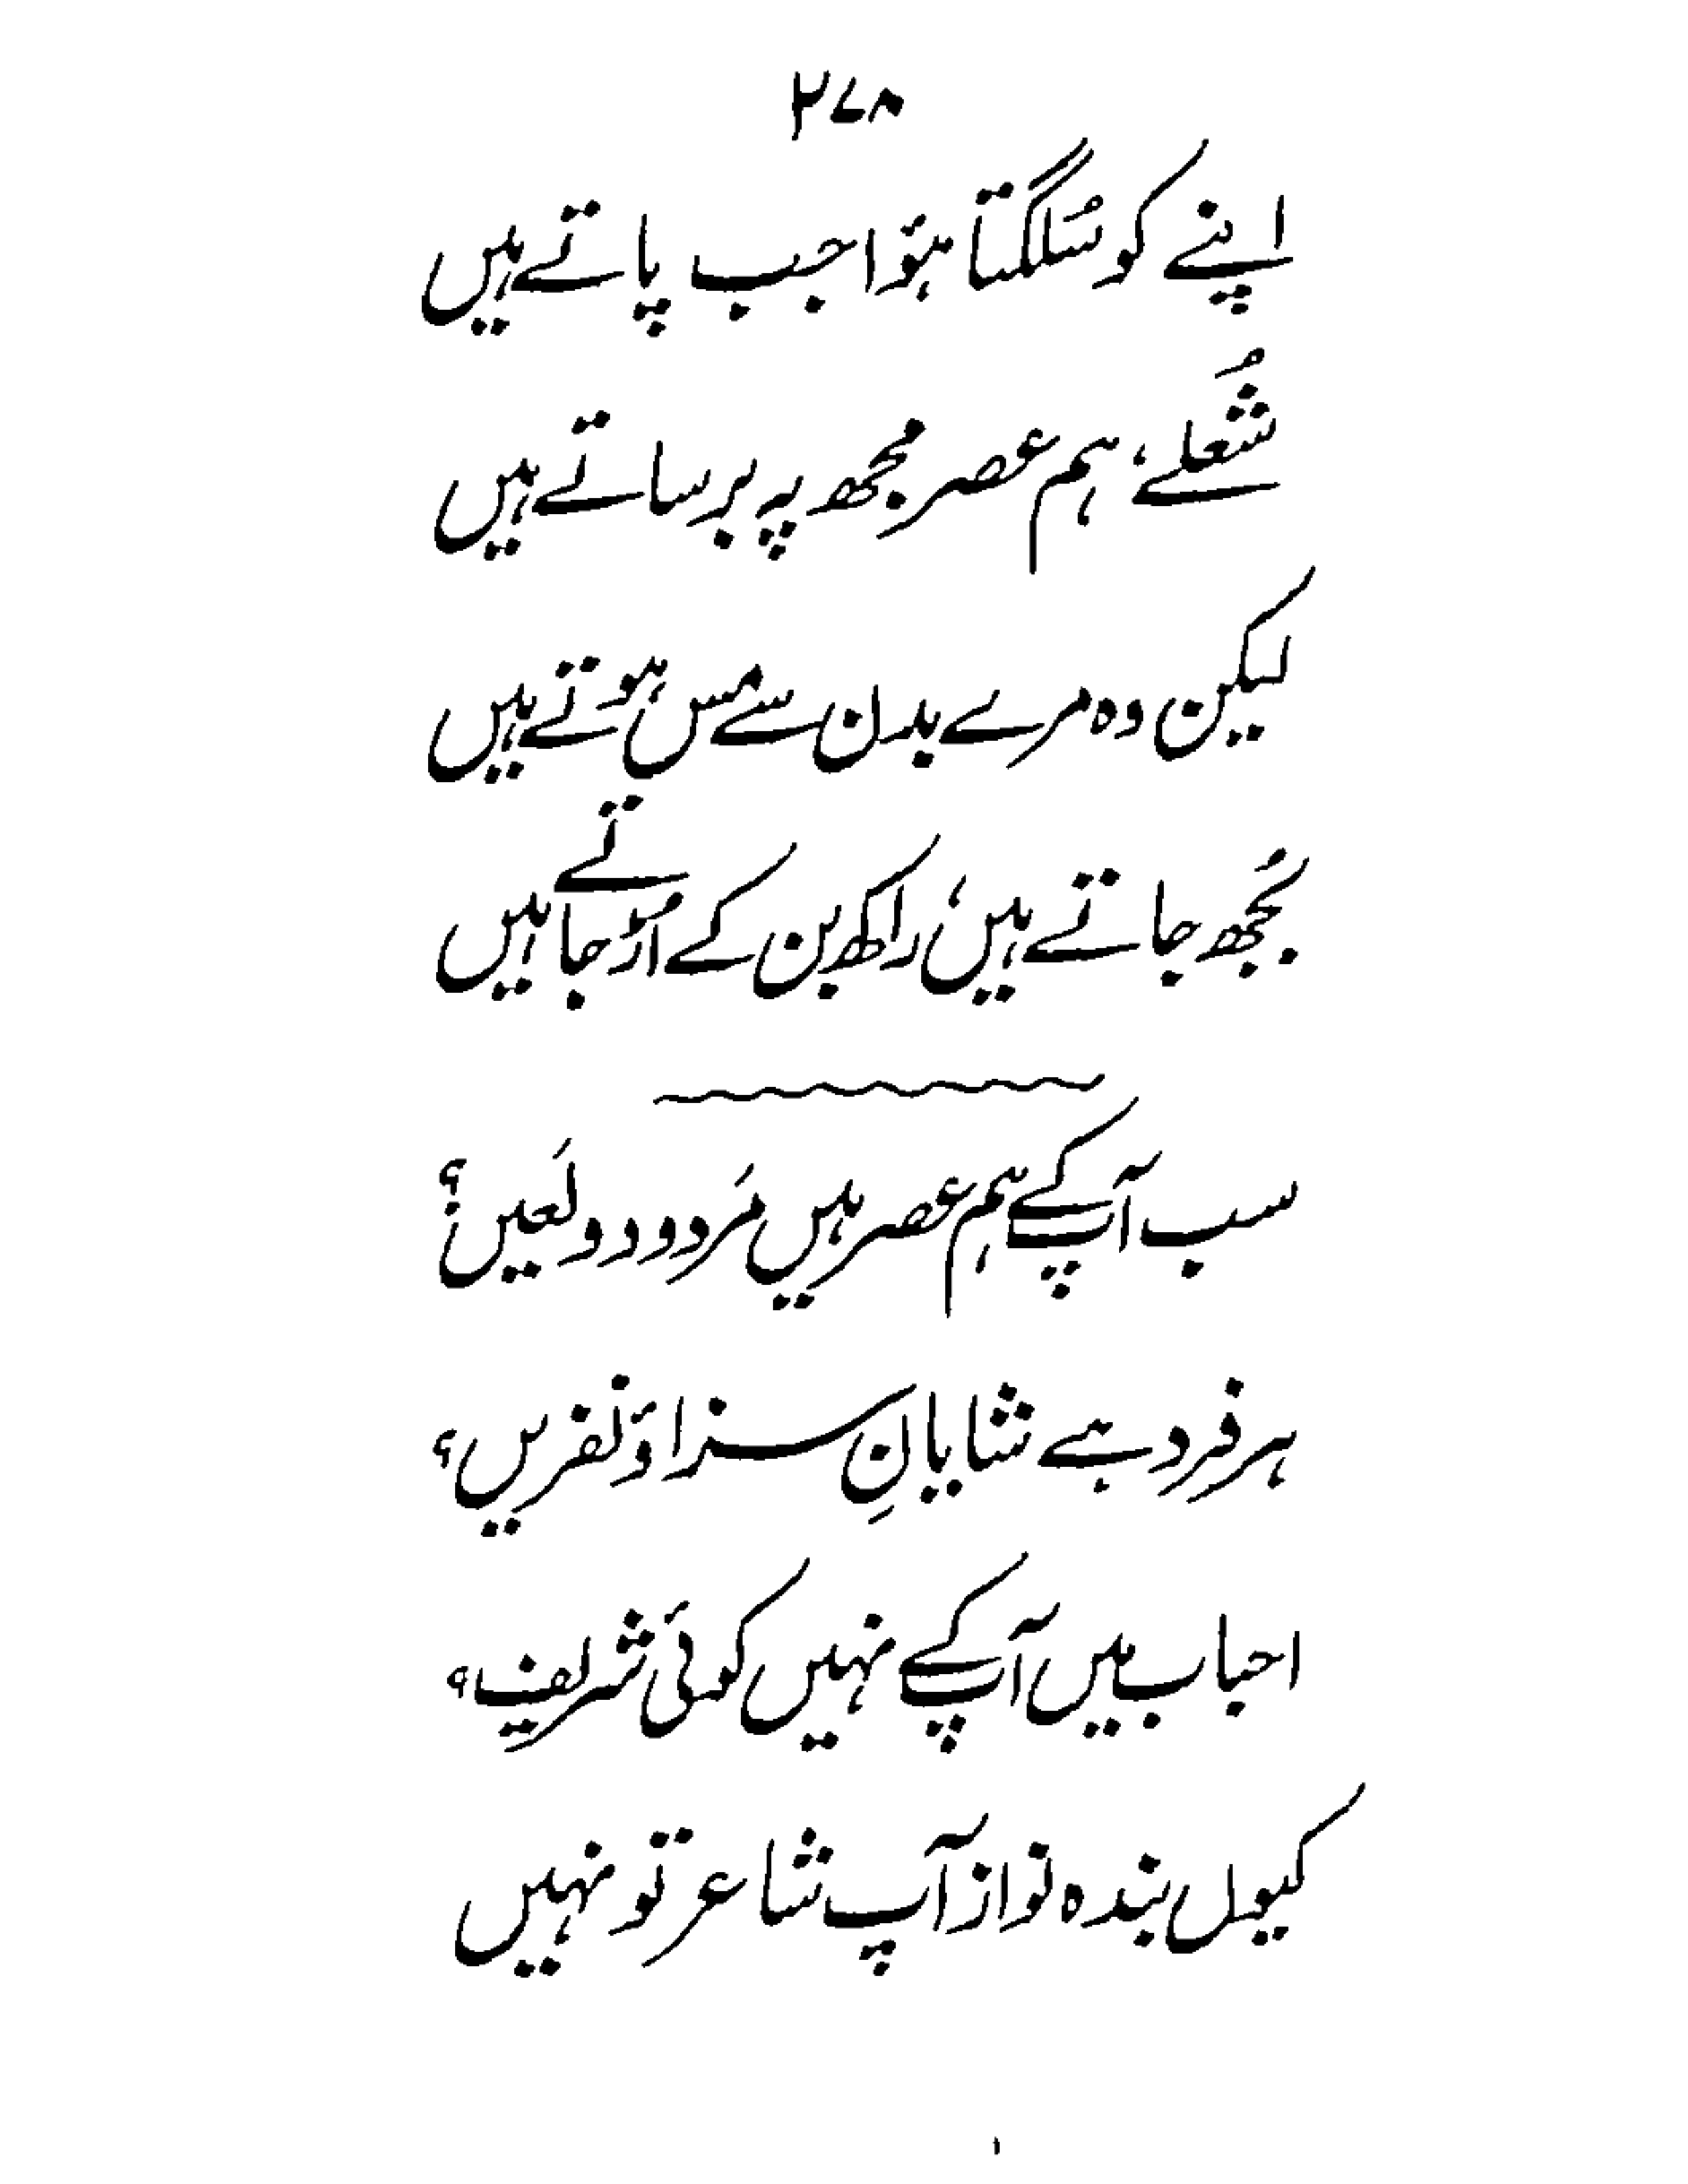 ۲۷۸
اپنے کو سُلگتا ہؤا جب پاتے ہیں
شُعلے، ہم عصر مجھ پہ برساتے ہیں
لیکن وہ مرے بدن سے مَس ہوتے ہیں
بُجھ جاتے ہیں، راکھ بن کے اڑ جاتے ہیں
سب آپ کے ہم عصر ہیں مَردود و لَعیں؟
ہر فرد ہے شایانِ سزا و نفریں؟
احباب میں آپ کے نہیں کوئی شریف؟
کیوں بندہ نواز آپ شاعر تو نہیں